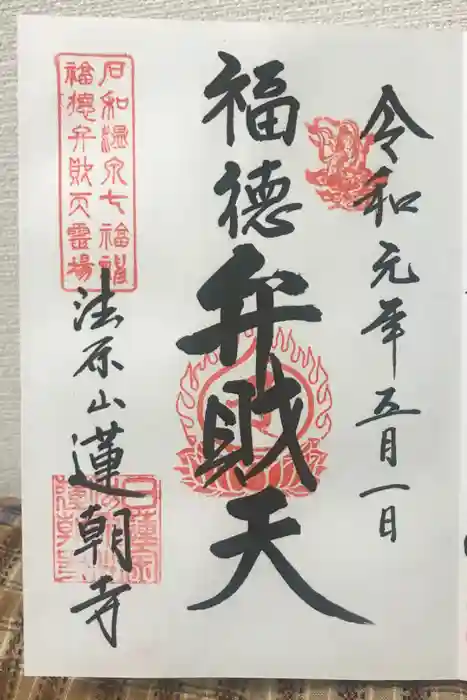 令和元年五月一日
福徳弁財天
石和温泉七福神
福徳弁財天霊場
法原山蓮朝寺